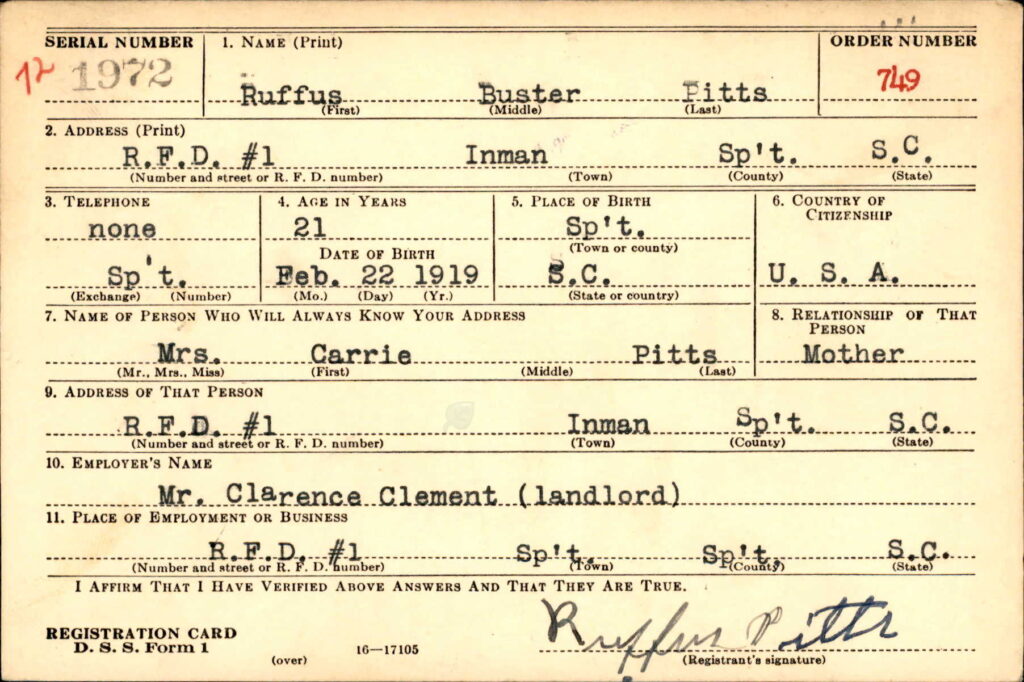 SERIAL NUMBER 1. NAME (Print) ORDER NUMBER
12 1972 Ruffus Buster Pitts 749
(First) (Middle) (Last)
2. ADDRESS (Print)
R.F.D. #1 Inman Sp't. S.C.
(Number and street or R. F. D. number) (Town) (County) (State)
3. TELEPHONE 4. AGE IN YEARS 5. PLACE OF BIRTH 6. COUNTRY OF CITIZENSHIP
none 21 Sp't.
(Town or county)
DATE OF BIRTH
Sp't. Feb. 22 1919 S.C. U. S. A.
(Exchange) (Number) (Mo.) (Day) (Yr.) (State or country)
7. NAME OF PERSON WHO WILL ALWAYS KNOW YOUR ADDRESS 8. RELATIONSHIP OF THAT PERSON
Mrs. Carrie Pitts Mother
(Mr., Mrs., Miss) (First) (Middle) (Last)
9. ADDRESS OF THAT PERSON
R.F.D. #1 Inman Sp't. S.C.
(Number and street or R. F. D. number) (Town) (County) (State)
10. EMPLOYER'S NAME
Mr. Clarence Clement (landlord)
11. PLACE OF EMPLOYMENT OR BUSINESS
R.F.D. #1 Sp't. Sp't. S.C.
(Number and street or R. F. D. number) (Town) (County) (State)
I AFFIRM THAT I HAVE VERIFIED ABOVE ANSWERS AND THAT THEY ARE TRUE.
Ruffus Pitts
REGISTRATION CARD
D. S. S. Form 1
(over) 16—17105 (Registrant's signature)